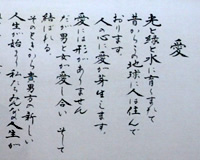 愛
光と緑と水に育しまれて
昔からこの地球に人は住んで
おります。
人の心に愛が芽生します
愛には形がありません
だが男と女が愛し合い そして
結ばれる
そのときから貴男方の新しい
人生が始まり 私たちみんなの人生が